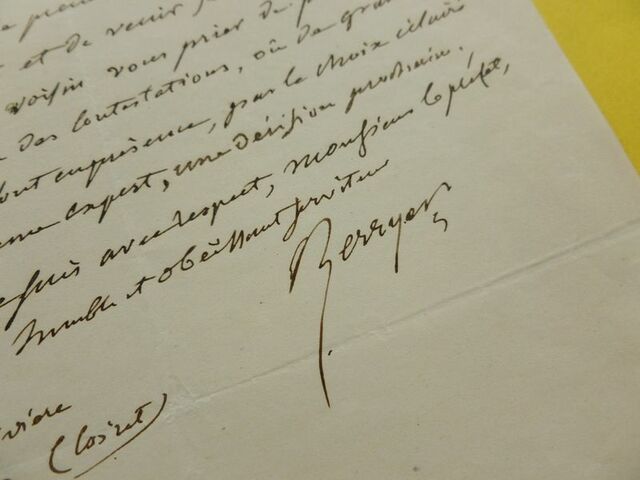 et de venir
voisin vous prier de
des contestations, où de gran
ont en présence, par le choix éclairé
expert, une décision prochaine.
suis avec respect, monsieur le préfet,
humble et obéissant serviteur
Berryer
vière
(Loiret)